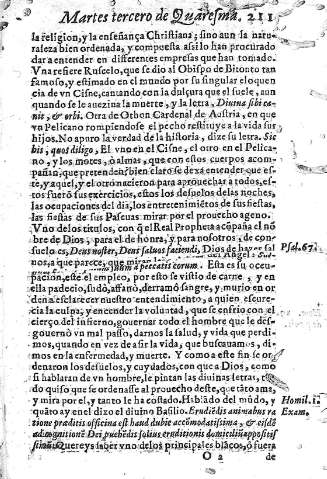 Martes tercero de Quaresma. 211
la religion, y la enseñança Christiana; sino aun la natu-
raleza bien ordenada, y compuesta assi lo han procurado
dar a entender en differentes empresas que han tomado.
Vna refiere Ruscelo, que se dio al Obispo de Bitonto tan
famoso, y estimado en el mundo por su singular eloquen
cia de vn Cisne, cantando con la dulçura que el suele, aun
quando se le auezina la muerte, y la letra, Diuina sibi ca-
nit, & orbi. Otra de Othon Cardenal de Austria, en que
vn Pelicano rompiendose el pecho restituye a la vida sus
hijos. No apuro la verdad de la historia, dize su letra. Sic
his, quos diligo, El vno en el Cisne, el otro en el Pelica-
no, y los motes, ò almas, que con estos cuerpos acom-
pañan, que pretenden? bien claro se dexa entender que es-
te, y aquel, y el otro nacieron para aprouechar a todos, es-
tos fuerõ sus exercicios, estos los desuelos de las noches,
las occupaciones del dia, los entretenimiẽtos de sus fiestas,
las fiestas de sus Pascuas mirar por el prouecho ageno.
Vno de los titulos, con q̃ el Real Propheta acõpaña el nõ
bre de Dios, para el de honra, y para nosotros, de con-
suelo es, Deus noster, Deus saluos faciendi, Dios de hazer sal
Psal. 67.
uos, a que parece, que mirar
el Angel: Salu-
peccatis eorum. Esta es su ocu-
pacion, este el empleo, por esto se vistio de carne, y en
ella padecio, sudò, affanò, derramò sangre, y murio en or
den a esclarecer nuestro entendimiento, a quien escure-
cia la culpa, y encender la voluntad, que se enfrio con el
cierço del infierno, gouernar todo el hombre que le des-
gouernò vn mal passo, darnos la salud, y vida que perdi-
mos, quando en vez de asir la vida, que buscauamos, di-
mos en la enfermedad, y muerte. Y como a este fin se or-
denaron los desuelos, y cuydados, con que a Dios, como
si hablaran de vn hombre, le pintan las diuinas letras,
do quiso que se ordenasse al prouecho deste, que tãto ama,
y mira por el, y tanto le ha costado. Hablãdo del mũdo, y
Homil. 1.
quãto ay en el dizo el diuino Basilio. Erudiẽdis animabus ra
Exam.
tione præditis officina est haud dubie accõmodatissima, & eisdẽ
ad cognitionẽ Dei
solius eruditionis domiciliũ appositis
simũ. Quereys saber vno de los principales blãcos, ò fuera
O 2 de